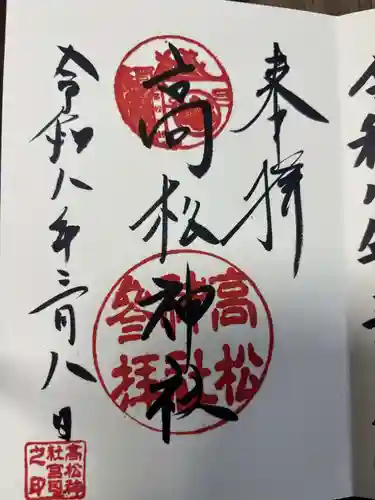 奉拝
高松神社
令和八年三月八日
高松
神社
参拝
高松神
社宮司
之印
令和八年